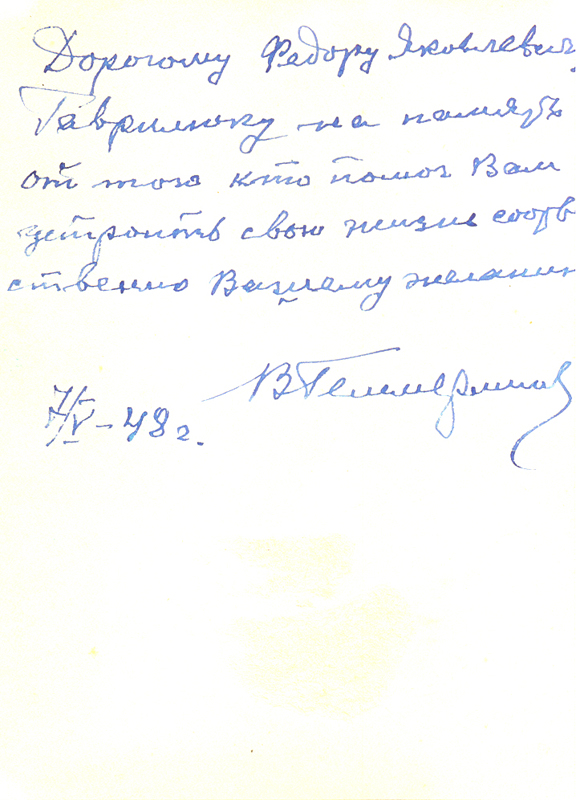 Дорогому Федору Яковлевич
Гаврилюку на память
от того кто помог Вам
устроить свою жизнь соотв
ственно Вашему желанию
В
7/V – 48 г.